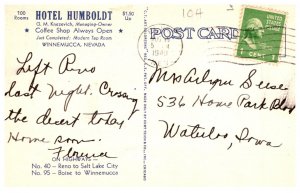 104
100 Rooms
HOTEL HUMBOLDT
$1.50 Up
G. M. Kurzevich, Managing-Owner
Coffee Shop Always Open
Just Completed: Modern Tap Room
WINNEMUCCA, NEVADA
POST CARD
1
Left Reno
last night. Crossing
the desert today
Home soon.
Florence
Miss
536 Home Park Blvd
Waterloo, Iowa
ON HIGHWAYS
No. 40 - Reno to Salt Lake City
No. 95 - Boise to Winnemucca